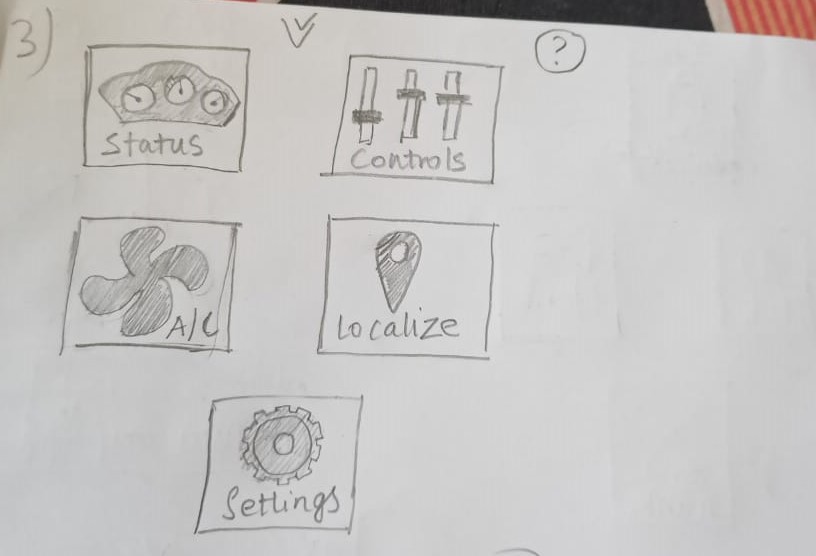 3)
?
Status
Controls
A/C
Localize
Settings